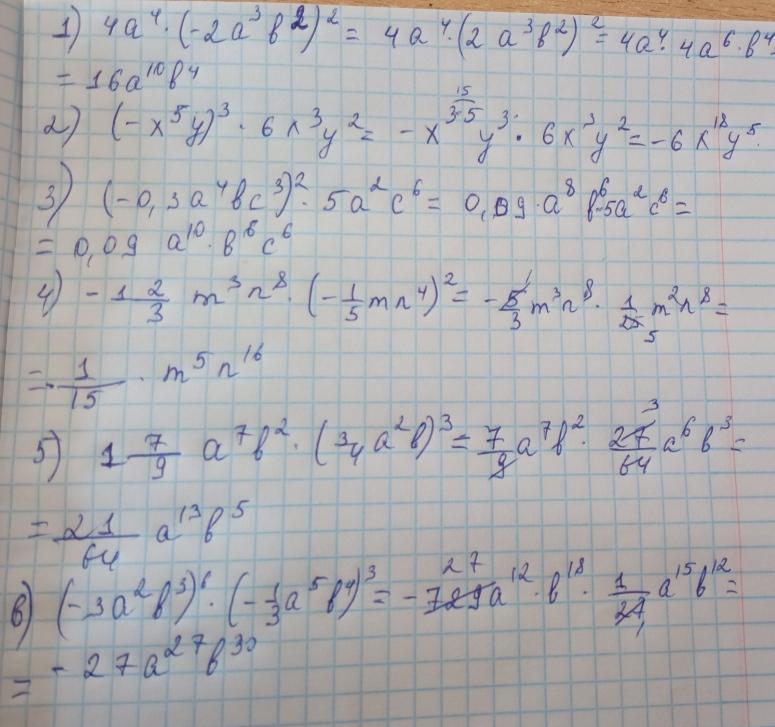 1) 4a⁴ · (-2a³b²)² = 4a⁴·(2a³b²)² = 4a⁴·4a⁶·b⁴=
= 16a¹⁰b⁴
2) (-x⁵y)³ · 6x³y² = -x³·⁵ 15 y³ · 6x³y² = -6x¹⁸y⁵.
3) (-0,3a⁴bc³)² · 5a²c⁶ = 0,09·a⁸b⁶·5a²c⁶ =
= 0,09 a¹⁰·b⁶c⁶
4) -1 2/3 m³n⁸·(-1/5 mn⁴)² = -5/3 m³n⁸· 1/25 m²n⁸ =
= -1/15 · m⁵n¹⁶
5) 1 7/9 a⁷b²·(3/4 a²b)³ = 7/9 a⁷b²· 27/64 a⁶b³ =
= 21/64 a¹³b⁵
6) (-3a²b³)⁶·(-1/3 a⁵b⁴)³ = -729a¹²·b¹⁸· 1/27 a¹⁵b¹²=
= -27a²⁷b³⁰